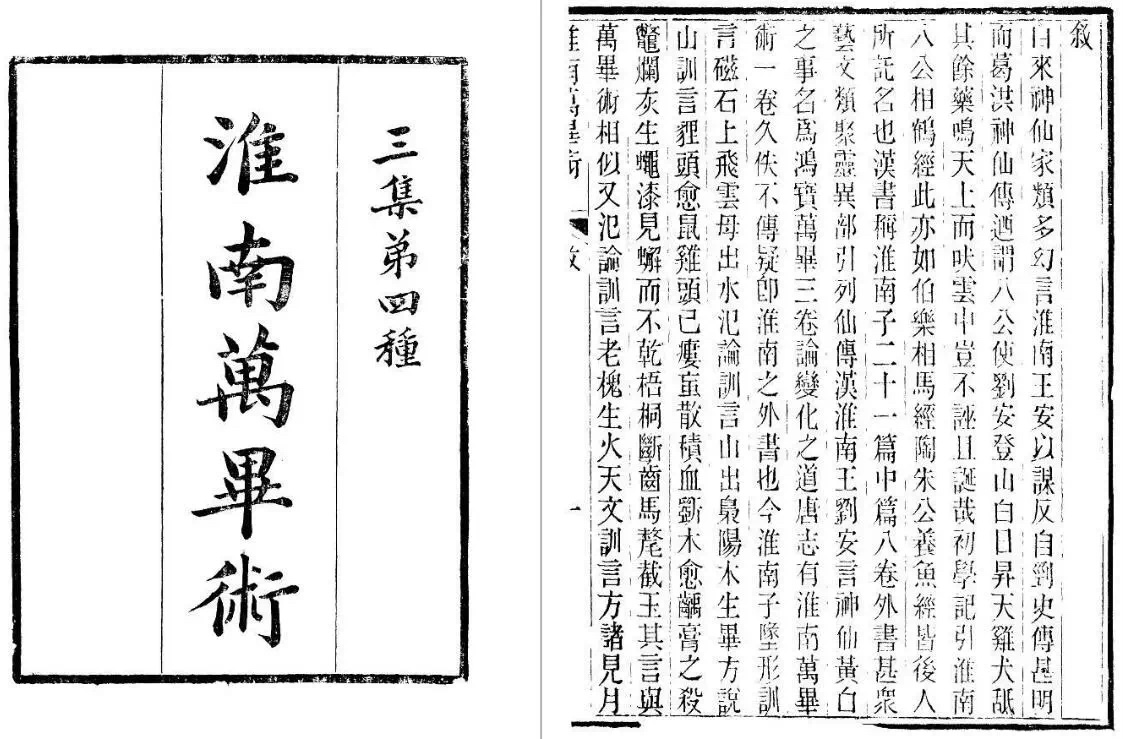 三集第四種
淮南萬畢術
敘
自來神仙家類多幻言淮南王安以謀反自剄史傳甚明
而葛洪神仙傳迺謂八公使劉安登山白日昇天雞犬舐
其餘藥鳴天上而吠雲中豈不誣且誕哉初學記引淮南
八公相鶴經此亦如伯樂相馬經陶朱公養魚經皆後人
所託名也漢書稱淮南子二十一篇中篇八卷外書甚衆
藝文類聚靈異部引列仙傳漢淮南王劉安言神仙黃白
之事名爲鴻寶萬畢三卷論變化之道唐志有淮南萬畢
術一卷久佚不傳疑卽淮南之外書也今淮南子墬形訓
言磁石上飛雲母出水氾論訓言山出梟陽木生畢方說
山訓言貍頭愈鼠雞頭已瘻蝱散積血斵木愈齲膏之殺
鼈爛灰生蠅漆見蠏而不乾梧桐斷齒馬氂截玉其言與
萬畢術相似又氾論訓言老槐生火天文訓言方諸見月
淮南萬畢術
敘
一